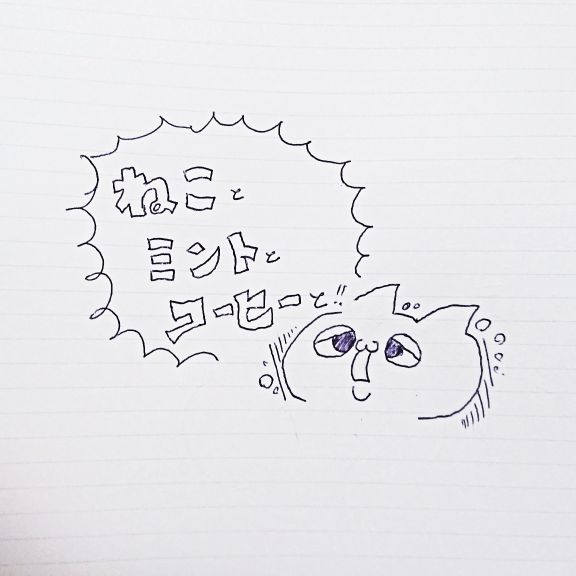 ねこと
ミントと
コーヒーと!!